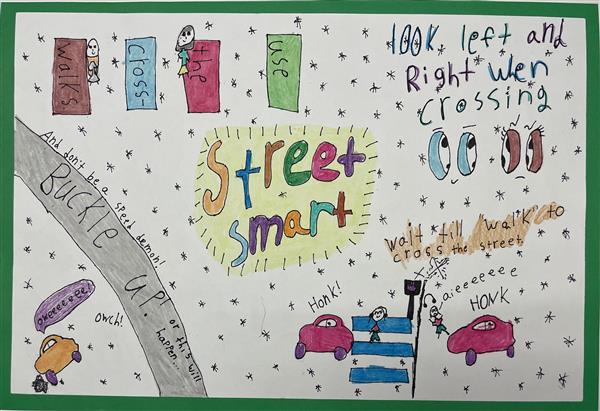 use
the
cross-
walks.
look left and
Right Wen
crossing
Street
smart
And don't be a speed demon!
Buckle up!
or this will
happen...
owch!
wait till "walk" to
cross the street
Honk!
aieeeeeee
HONK